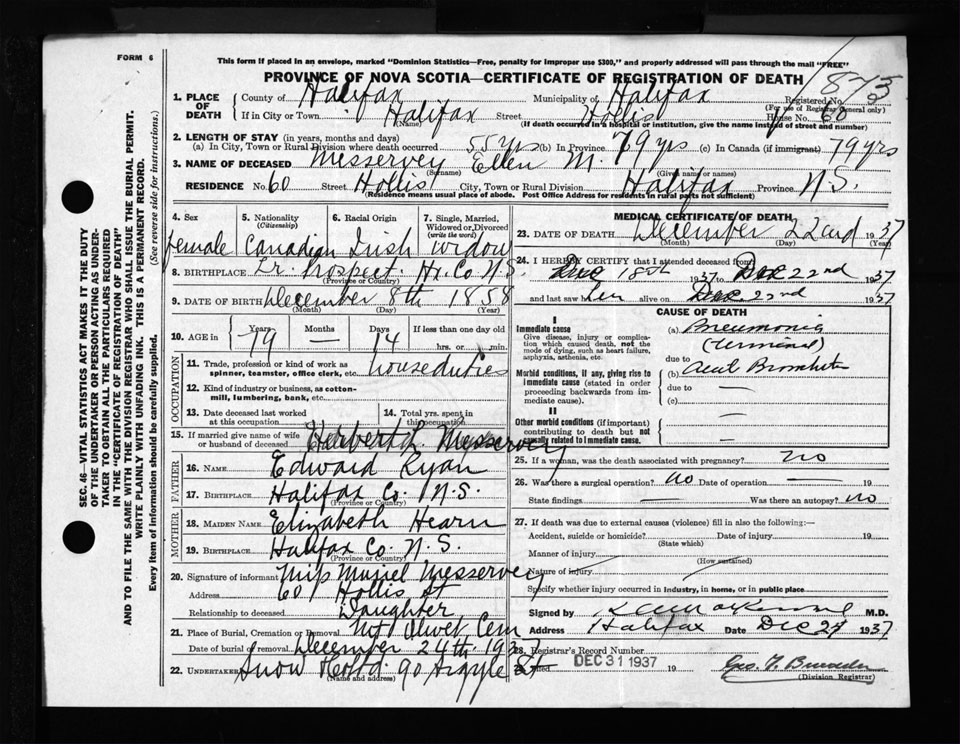 FORM 6
This form if placed in an envelope, marked "Dominion Statistics—Free, penalty for improper use $300," and properly addressed will pass through the mail "FREE"
PROVINCE OF NOVA SCOTIA—CERTIFICATE OF REGISTRATION OF DEATH
1. PLACE OF DEATH County of Halifax Municipality of Halifax Registered No. (For use of Registrar General only)
If in City or Town Halifax (Name) Street Hollis House No. 60
(If death occurred in a hospital or institution, give the name instead of street and number)
2. LENGTH OF STAY (in years, months and days)
(a) In City, Town or Rural Division where death occurred 55 yrs (b) In Province 79 yrs (c) In Canada (if immigrant) 79 yrs
3. NAME OF DECEASED Messervey Ellen M.
(Surname) (Given name or names)
RESIDENCE No. 60 Street Hollis City, Town or Rural Division Halifax Province N.S.
(Residence means usual place of abode. Post Office Address for residents in rural parts not sufficient)
4. Sex 5. Nationality (Citizenship) 6. Racial Origin 7. Single, Married, Widowed or Divorced (write the word)
female Canadian Irish widow
8. BIRTHPLACE Lr. Prospect. Hx. Co. N.S.
(Province or Country)
9. DATE OF BIRTH December 8th 1858
(Month) (Day) (Year)
10. AGE in Years Months Days If less than one day old
79 — 14 hrs. or min.
OCCUPATION
11. Trade, profession or kind of work as spinner, teamster, office clerk, etc. house duties
12. Kind of industry or business, as cotton-mill, lumbering, bank, etc.
13. Date deceased last worked at this occupation 14. Total yrs. spent in this occupation
15. If married give name of wife or husband of deceased Herbert L. Messervey
FATHER
16. NAME Edward Ryan
17. BIRTHPLACE Halifax Co. N.S.
(Province or Country)
MOTHER
18. MAIDEN NAME Elizabeth Hearn
19. BIRTHPLACE Halifax Co. N.S.
(Province or Country)
20. Signature of informant Miss Muriel Messervey
Address 60 Hollis St
Relationship to deceased Daughter
21. Place of Burial, Cremation or Removal Mt Olivet Cem
Date of burial or removal December 24th 1937
22. UNDERTAKER Snow 90 Argyle St
(Name and address)
MEDICAL CERTIFICATE OF DEATH
23. DATE OF DEATH December 22nd 1937
(Month) (Day) (Year)
24. I HEREBY CERTIFY that I attended deceased from
Dec 18th 1937 to Dec 22nd 1937
and last saw her alive on Dec. 22nd 1937
CAUSE OF DEATH
I
Immediate cause
Give disease, injury or complication which caused death, not the mode of dying, such as heart failure, asphyxia, asthenia, etc.
(a) Pneumonia
(terminal)
due to
Morbid conditions, if any, giving rise to immediate cause (stated in order proceeding backwards from immediate cause).
(b)
due to —
(c)
II
Other morbid conditions (if important) contributing to death but not causally related to immediate cause.
—
—
25. If a woman, was the death associated with pregnancy? no
26. Was there a surgical operation? no Date of operation — 19
State findings — Was there an autopsy? no
27. If death was due to external causes (violence) fill in also the following:—
Accident, suicide or homicide? Date of injury 19
(State which)
Manner of injury
(How sustained)
Nature of injury
Specify whether injury occurred in industry, in home, or in public place
Signed by M.D.
Address Halifax Date Dec 1937
28. Registrar's Record Number
DEC 31 1937 19
(Division Registrar)
SEC. 46—VITAL STATISTICS ACT MAKES IT THE DUTY
OF THE UNDERTAKER OR PERSON ACTING AS UNDER-
TAKER TO OBTAIN ALL THE PARTICULARS REQUIRED
IN THE "CERTIFICATE OF REGISTRATION OF DEATH"
AND TO FILE THE SAME WITH THE DIVISION REGISTRAR WHO SHALL ISSUE THE BURIAL PERMIT.
WRITE PLAINLY WITH UNFADING INK. THIS IS A PERMANENT RECORD.
Every item of information should be carefully supplied. (See reverse side for instructions.)